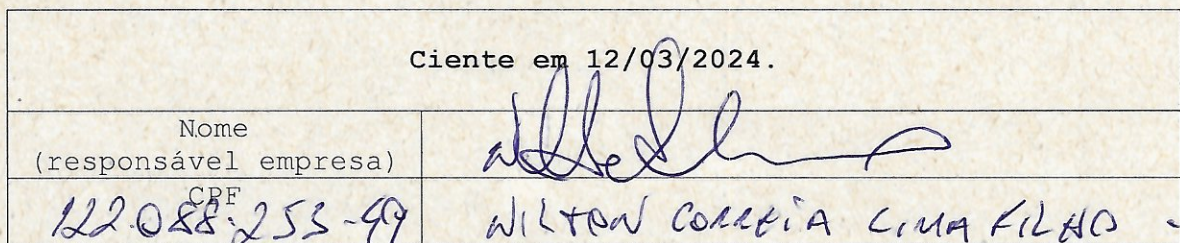 Ciente em 12/03/2024.
Nome
(responsável empresa)
CPF
122.088.253-49 WILTON CORREIA LIMA FILHO